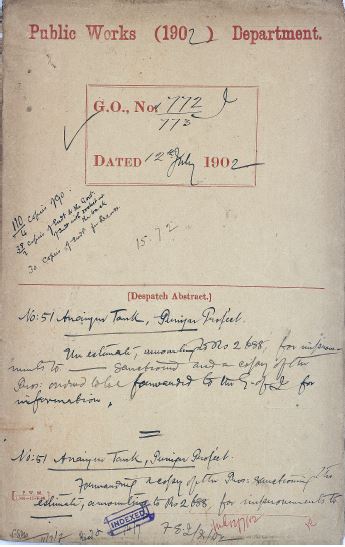 Public Works (1902) Department.
G.O., No. 772 I
773
DATED 12th July 1902
110 copies of g.o.
30 copies of
15.7.2
[Despatch Abstract.]
No: 51 Anaiyur Tank, Periyar Project.
An estimate, amounting to Rs 2688, for improve-
ments to — sanctioned and a copy of the
Pros: ordered to be forwarded to the G. of I. for
information.
No: 51 Anaiyur Tank, Periyar Project.
Forwarding a copy of the Pros: sanctioning the
estimate, amounting to Rs 2688, for improvements to
INDEXED